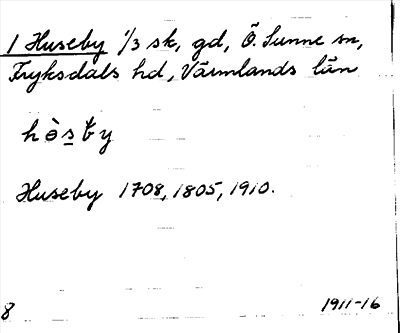 1 Huseby 1/3 sk, gd, Ö. Sunne sn,
Fryksdals hd, Värmlands län
hòsby
Huseby 1708, 1805, 1910.
8
1911-16